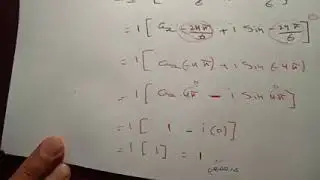 = 1 [ Cos -24π/6 + i Sin -24π/6 ]
= 1 [ Cos -4π + i Sin -4π ]
= 1 [ Cos 4π - i Sin 4π ]
= 1 [ 1 - i(0) ]
= 1 [ 1 ] = 1